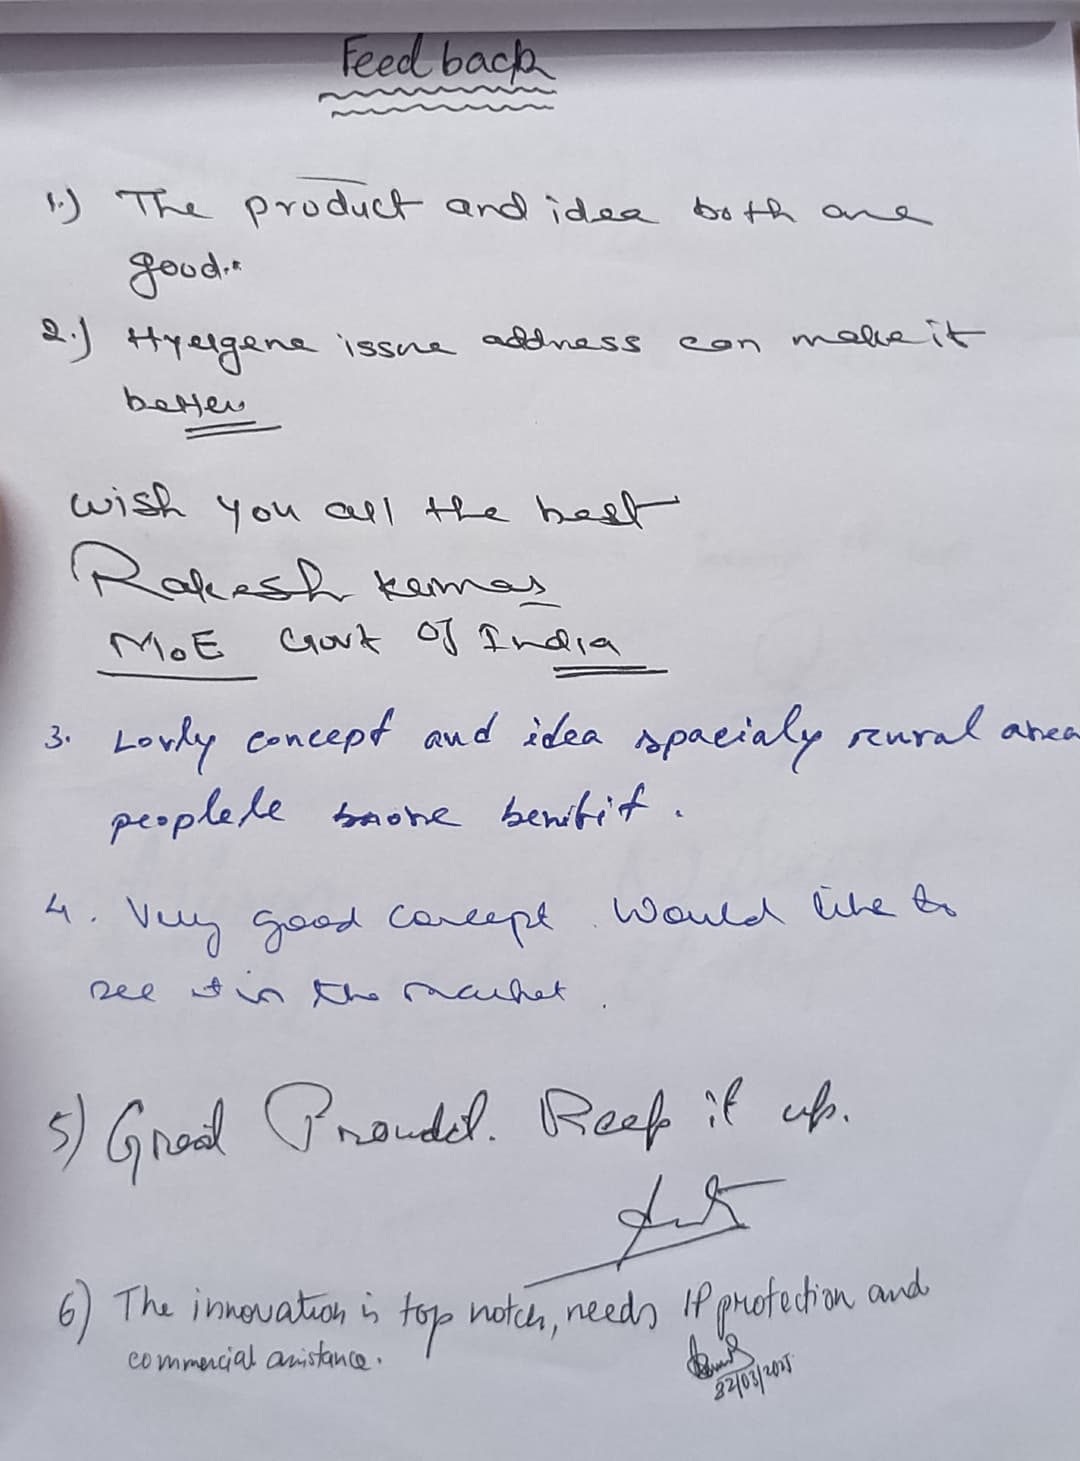 Feedback
1.) The product and idea both are
good..
2.) Hyeigene issue address can make it
better
wish you all the best
Rakesh Kumar
MoE Govt of India
3. Lovly concept and idea spacialy rural area
peoplele more benifit.
4. Very good concept. Would like to
see it in the market.
5) Great Proudct. Keep it up.
6) The innovation is top notch, needs IP protection and
commercial assistance.
22/03/2025